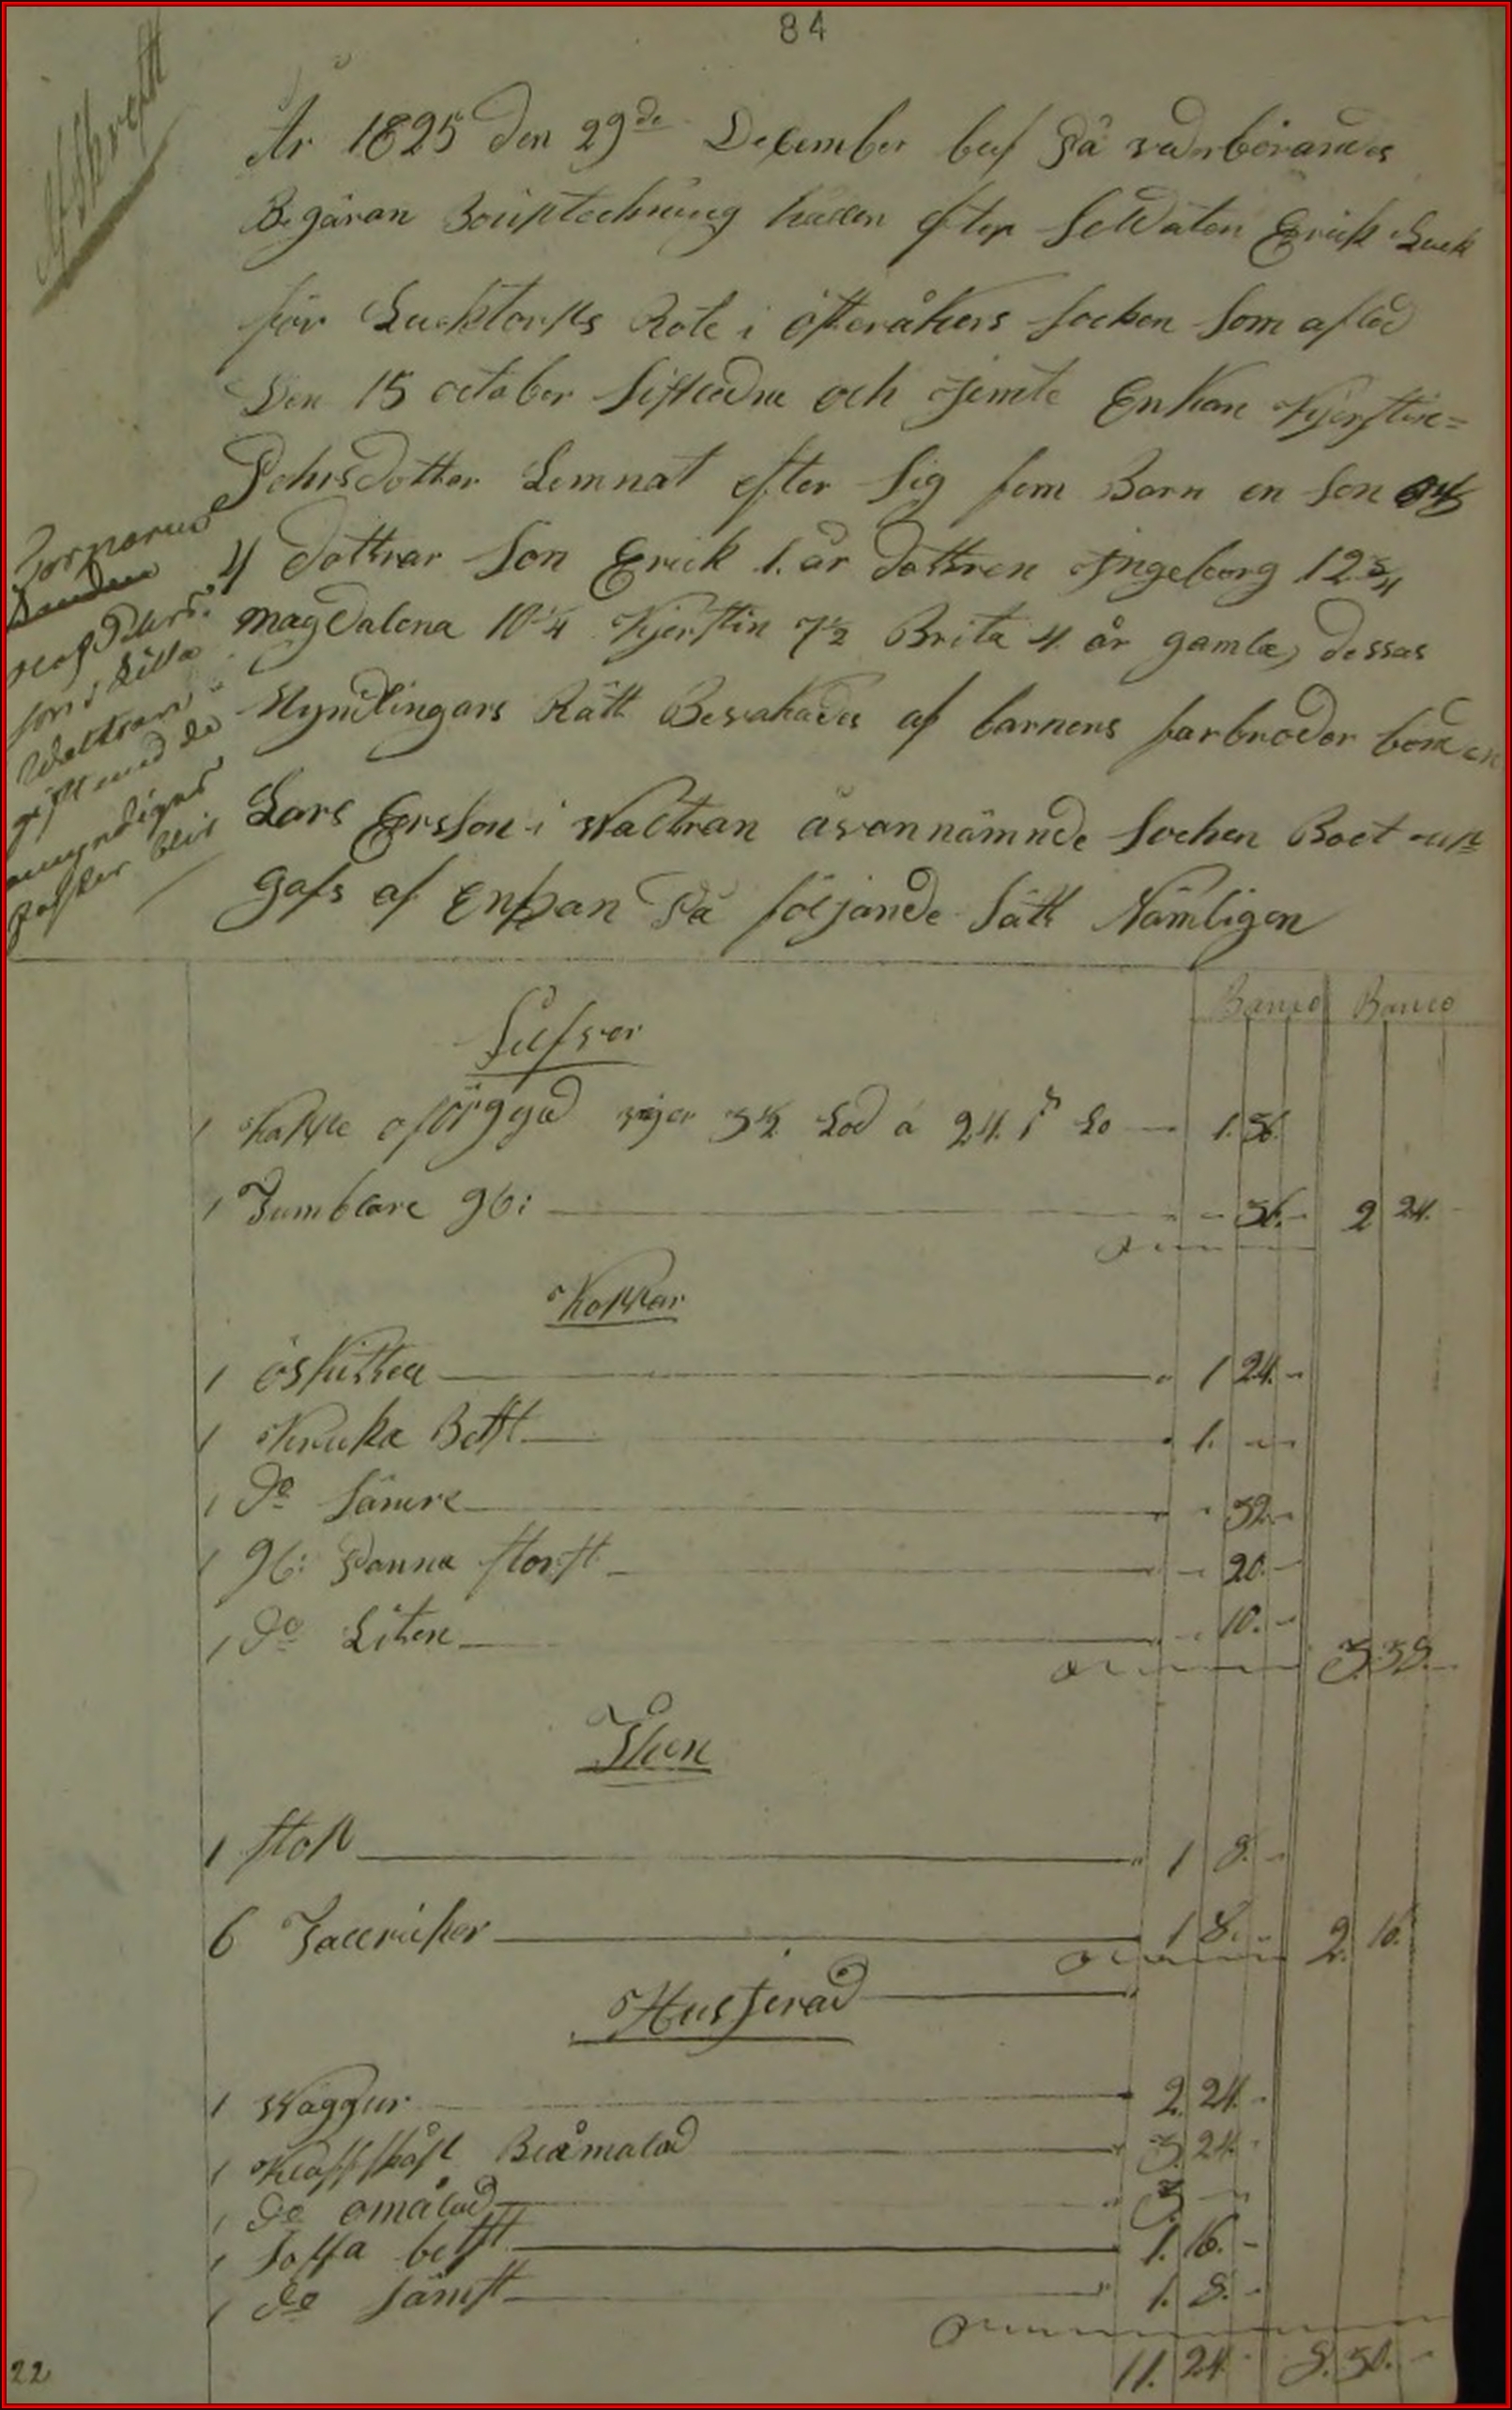 84
Afskrift
År 1825 den 29de December blef på vederbörandes
Begäran Bouptechning hållen efter Soldaten Erick Luck
för Lucktorps Rote i Österåkers Socken som afled
Den 15 october Sistledne och Jemte Enkan Kjerstin=
Pehrsdotter Lemnat efter Sig fem Barn en Son och
4 döttrar Son Erick 1. år dottren Ingeborg 12 3/4
Magdalena 10 1/4 Kjerstin 7 1/2 Brita 4 år gamla, dessas
Myndlingars Rätt Bevakades af barnens farbroder bonden
Lars Ersson i Waltran åvannämnde Sochen Boet upp
gafs af Enkan på följande Sätt Nämligen
Torparen
Olof Pehrs:
son i Lilla
Waltran
gift med de
omyndigas
faster blir
Banco Banco
Silfver
1 Kappe oförgyld väger 3 1/2 Lod á 24 s Lo 1. 36.
1 Tumblare gb: - 36. - 2 24.
Koppar
1 öskittel 1 24. -
1 Kruka Bätt 1. - -
1 do Sämre - 32. -
1 gb: Panna störst - 20. -
1 do Liten - 10. - 3. 38. -
Then
1 Stop 1 8. -
6 Tallricker 1 8. - 2. 16.
Husgeråd
1 Wäggur 2. 24. -
1 Klaffskåp Blåmalad 3. 24. -
1 do omålad 3. -
1 Soffa bätst 1. 16. -
1 do Sämst 1. 8. -
11. 24 - 8. 30. -
22